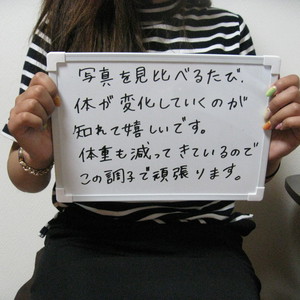 写真を見比べるたび、
体が変化していくのが
知れて嬉しいです。
体重も減ってきているので
この調子で頑張ります。